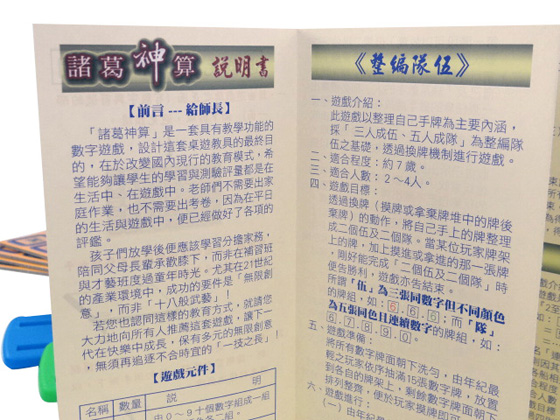 諸葛神算 説明書
【前言 --- 給師長】
「諸葛神算」是一套具有教學功能的
數字遊戲，設計這套桌遊教具的最終目
的，在於改變國內現行的教育模式，希
望能夠讓學生的學習與測驗評量都是在
生活中、在遊戲中。老師們不需要出家
庭作業，也不需要出考卷，因為在平日
的生活與遊戲中，便已經做好了各項的
評鑑。
孩子們放學後便應該學習分擔家務，
陪同父母長輩承歡膝下，而非在補習班
與才藝班度過童年時光。尤其在21世紀
的產業環境中，成功的要件是「無限創
意」，而非「十八般武藝」！
若您也認同這樣的教育方式，就請您
大力地向所有人推薦這套遊戲，讓下一
代在快樂中成長，保有多元的無限創意
，無須再追逐不合時宜的「一技之長」！
【遊戲元件】
名稱 數量 說 明
由0～9十個數字組成一組
《整編隊伍》
一、遊戲介紹：
此遊戲以整理自己手牌為主要內涵，
採「三人成伍、五人成隊」為整編隊
伍之基礎，透過換牌機制進行遊戲。
二、適合程度：約7歲。
三、適合人數：2～4人。
四、遊戲目標：
透過換牌（摸牌或拿棄牌堆中的牌後
棄牌）的動作，將自己手上的牌整理
成二個伍及二個隊。當某位玩家牌架
上的牌，加上摸進或拿進的那一張牌
，剛好能完成「二個伍及二個隊」時
便告勝利，遊戲亦告結束。
所謂「伍」為三張同數字但不同顏色
的牌組，如：6.6.6；而「隊」
為五張同色且連續數字的牌組，如：
6.7.8.9.0。
五、遊戲準備：
將所有數字牌面朝下洗勻，由年紀最
輕之玩家依序抽滿15張數字牌，放置
到各自的牌架上，剩餘數字牌牌面朝下
排列整齊，便於玩家摸牌即可
六、遊戲進行：
(一) 由年紀最